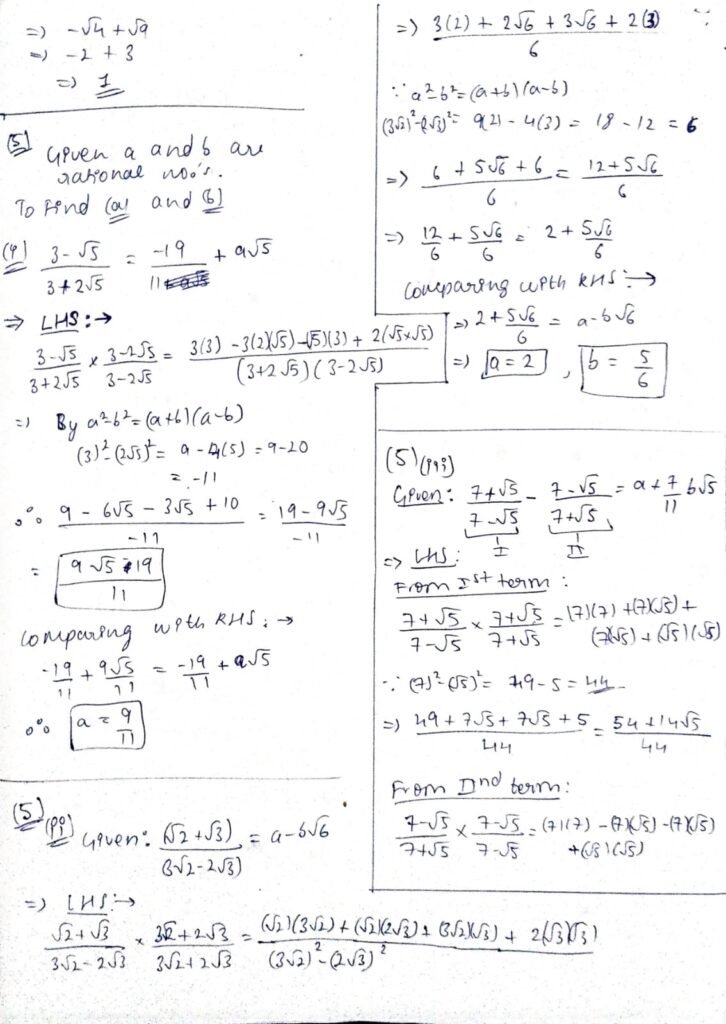 => -√4 + √9
=> -2 + 3
=> 1
(5) Given a and b are
rational noo's.
To find (a) and (b)
(i) 3-√5 / 3+2√5 = -19 / 11 + a√5
=> LHS :→
3-√5 / 3+2√5 × 3-2√5 / 3-2√5 = 3(3) - 3(2)(√5) - (√5)(3) + 2(√5×√5) / (3+2√5)(3-2√5)
=> By a²-b² = (a+b)(a-b)
(3)² - (2√5)² = 9 - 4(5) = 9-20
= -11
∴ 9 - 6√5 - 3√5 + 10 / -11 = 19-9√5 / -11
= 9√5 - 19 / 11
comparing with RHS : →
-19/11 + 9√5/11 = -19/11 + a√5
∴ a = 9/11
(5) (ii) Given: (√2+√3) / (3√2-2√3) = a-b√6
=> LHS :→
√2+√3 / 3√2-2√3 × 3√2+2√3 / 3√2+2√3 = (√2)(3√2) + (√2)(2√3) + (3√2)(√3) + 2(√3)(√3) / (3√2)² - (2√3)²
=> 3(2) + 2√6 + 3√6 + 2(3) / 6
∵ a²-b² = (a+b)(a-b)
(3√2)² - (2√3)² = 9(2) - 4(3) = 18 - 12 = 6
=> 6 + 5√6 + 6 / 6 = 12+5√6 / 6
=> 12/6 + 5√6/6 = 2 + 5√6/6
comparing with RHS :→
=> 2 + 5√6/6 = a-b√6
=> a = 2 , b = 5/6
(5) (iii)
Given: 7+√5 / 7-√5 - 7-√5 / 7+√5 = a + 7/11 b√5
I II
=> LHS :
From Ist term :
7+√5 / 7-√5 × 7+√5 / 7+√5 = (7)(7) + (7)(√5) +
(7)(√5) + (√5)(√5)
∵ (7)² - (√5)² = 49 - 5 = 44
=> 49 + 7√5 + 7√5 + 5 / 44 = 54 + 14√5 / 44
From IInd term :
7-√5 / 7+√5 × 7-√5 / 7-√5 = (7)(7) - (7)(√5) - (7)(√5)
+ (√5)(√5)